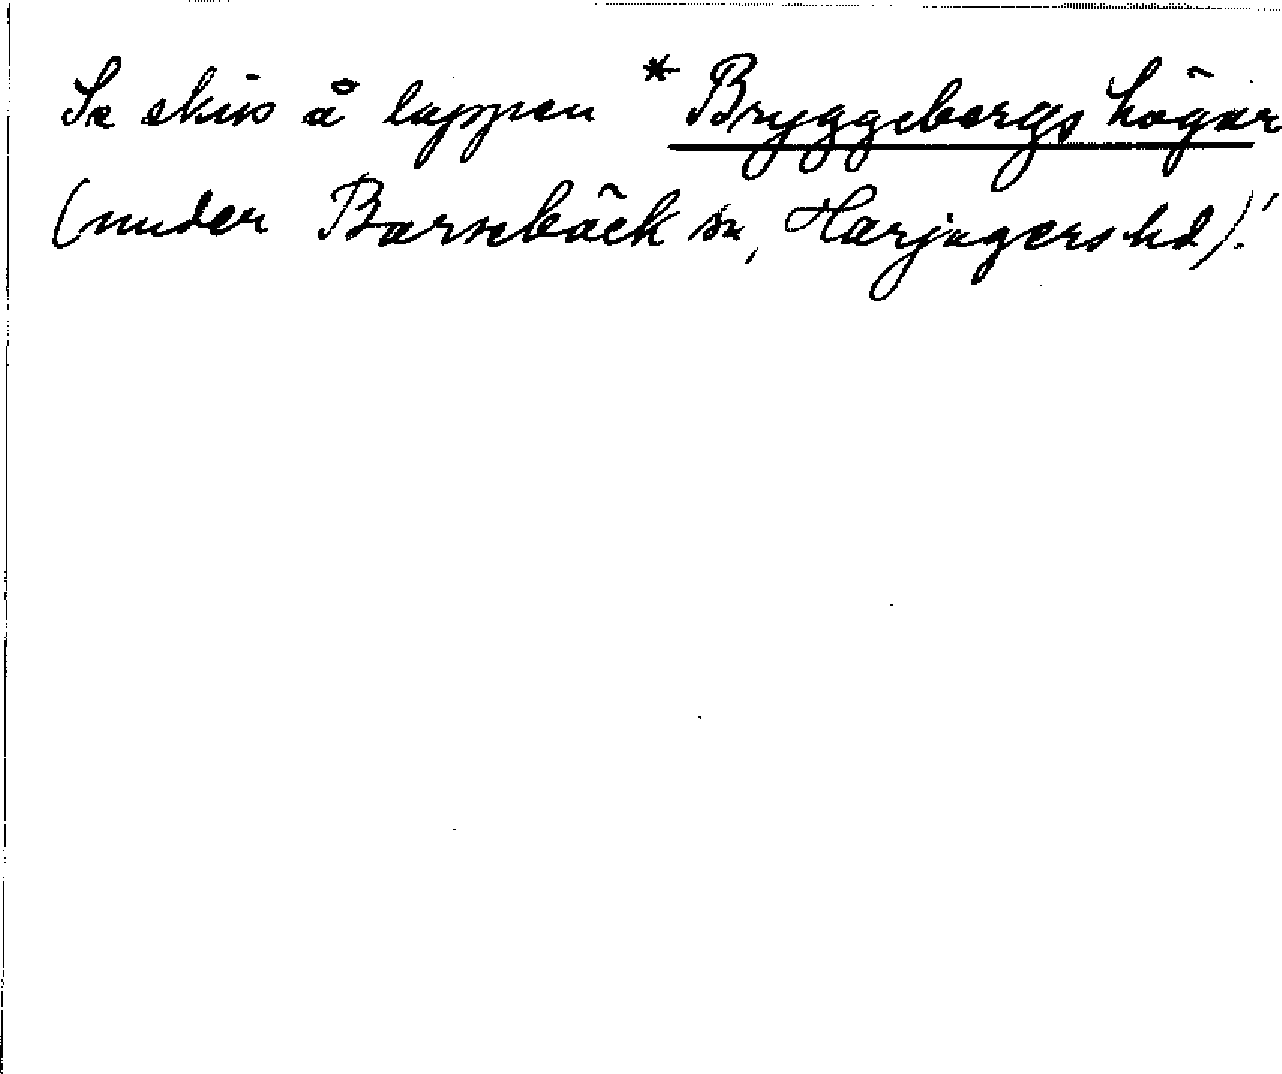 Se skiss å lappen * Bryggebergs högar
(under Barsebäck sn, Harjagers hd)!